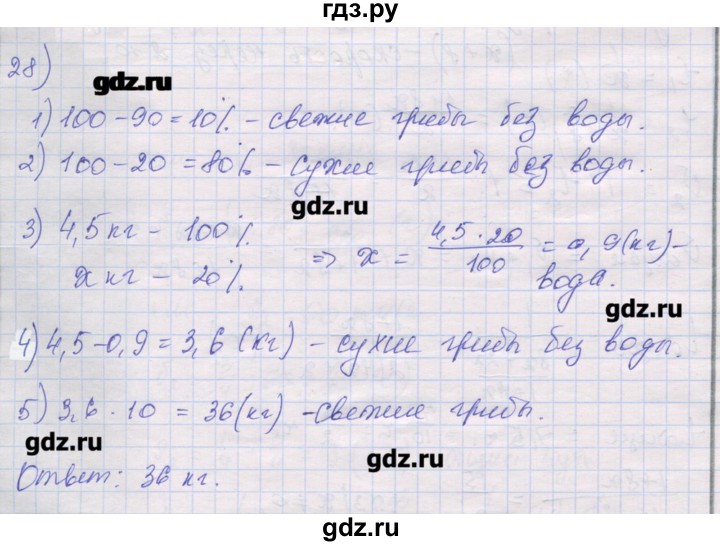 гдз.ру
28)
gdz.ru
1) 100 - 90 = 10% - свежие грибы без воды.
2) 100 - 20 = 80% - сухие грибы без воды.
gdz.ru
3) 4,5 кг - 100%
х кг - 20%
=> х = 4,5 · 20 / 100 = 0,9 (кг) - вода.
4) 4,5 - 0,9 = 3,6 (кг) - сухие грибы без воды.
gdz.ru
5) 3,6 · 10 = 36 (кг) - свежие грибы.
gdz.ru
gdz.ru
Ответ: 36 кг.
gdz.ru